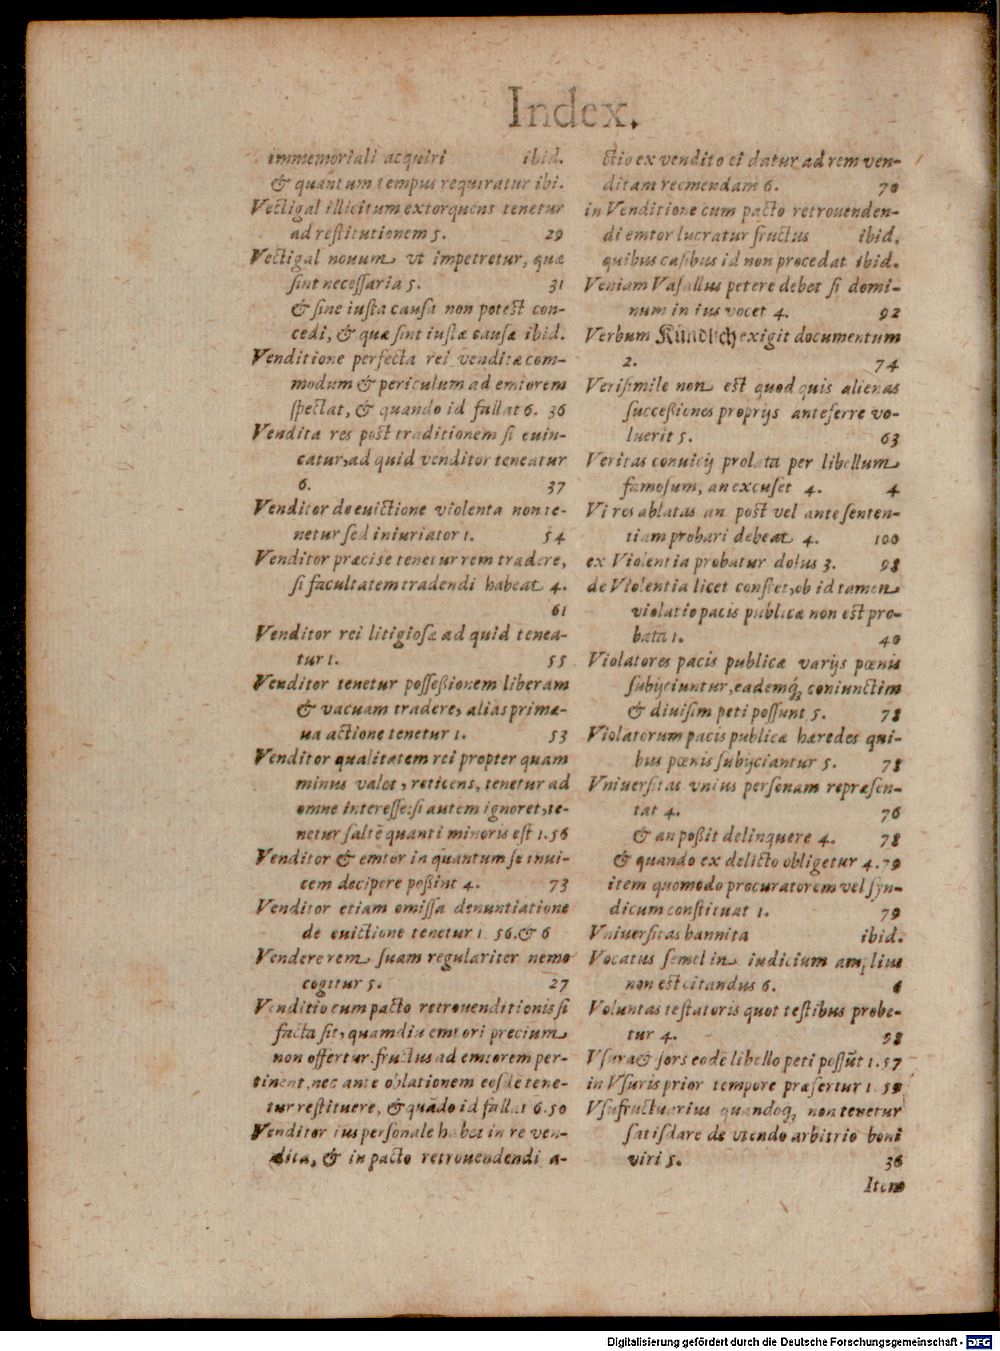 Index.
immemoriali acquiri ibid.
& quantum tempus requiratur ibi.
Vectigal illicitum extorquens tenetur
ad restitutionem 5. 29
Vectigal nouum vt impetretur, quæ
sint necessaria 5. 31
& sine iusta causa non potest con-
cedi, & quæ sint iustæ causæ ibid.
Venditione perfecta rei venditæ com-
modum & periculum ad emtorem
spectat, & quando id fallat 6. 36
Vendita res post traditionem si euin-
catur, ad quid venditor teneatur
6. 37
Venditor de euictione violenta non te-
netur sed iniuriator 1. 54
Venditor præcise tenetur rem tradere,
si facultatem tradendi habeat 4.
61
Venditor rei litigiosæ ad quid tenea-
tur 1. 55
Venditor tenetur possessionem liberam
& vacuam tradere, alias primæ-
ua actione tenetur 1. 53
Venditor qualitatem rei propter quam
minus valet, reticens, tenetur ad
omne interesse: si autem ignoret, te-
netur saltē quanti minoris est 1. 56
Venditor & emtor in quantum se inui-
cem decipere poßint 4. 73
Venditor etiam omissa denuntiatione
de euictione tenetur 1. 56. & 6
Vendere rem suam regulariter nemo
cogitur 5. 27
Venditio cum pacto retrouenditionis si
facta sit, quamdiu emtori precium
non offertur, fructus ad emtorem per-
tinent, nec ante oblationem eosdē tene-
tur restituere, & quādo id fallat 6. 50
Venditor ius personale habet in re ven-
dita, & in pacto retrouendendi a-
ctio ex vendito ei datur ad rem ven-
ditam reemendam 6. 70
in Venditione cum pacto retrouenden-
di emtor lucratur fructus ibid.
quibus casibus id non procedat ibid.
Veniam Vasallus petere debet si domi-
num in ius vocet 4. 92
Verbum Kündlich exigit documentum
2. 74
Verisimile non est quod quis alienas
succeßiones proprijs anteferre vo-
luerit 5. 63
Veritas conuicij prolata per libellum
famosum, an excuset 4. 4
Vi res ablatas an post vel ante senten-
tiam probari debeat 4. 100
ex Violentia probatur dolus 3. 98
de Violentia licet constet, ob id tamen
violatio pacis publicæ non est pro-
bata 1. 40
Violatores pacis publicæ varijs pœnis
subijciuntur, eademq́; coniunctim
& diuisim peti possunt 5. 78
Violatorum pacis publicæ hæredes qui-
bus pœnis subijciantur 5. 78
Vniuersitas vnius personam repræsen-
tat 4. 76
& an poßit delinquere 4. 78
& quando ex delicto obligetur 4. 79
item quomodo procuratorem vel syn-
dicum constituat 1. 79
Vniuersitas bannita ibid.
Vocatus semel in iudicium amplius
non est citandus 6. 6
Voluntas testatoris quot testibus probe-
tur 4. 98
Vsura & sors eodē libello peti possūt 1. 57
in Vsuris prior tempore præfertur 1. 59
Vsufructuarius quandoq; non tenetur
satisdare de vtendo arbitrio boni
viri 5. 36
Item
Digitalisierung gefördert durch die Deutsche Forschungsgemeinschaft - DFG